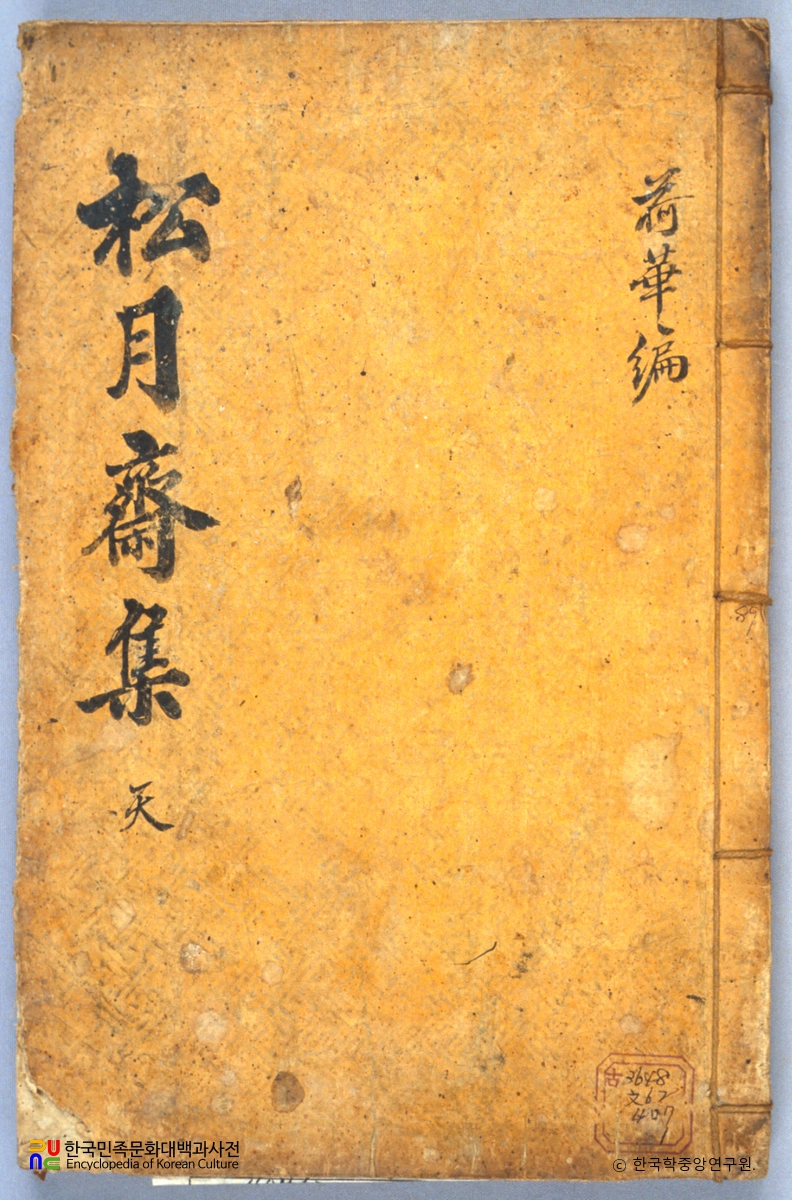 荷華編
松月齋集
天
古 3648
文62
407
1
한국민족문화대백과사전
Encyclopedia of Korean Culture
© 한국학중앙연구원